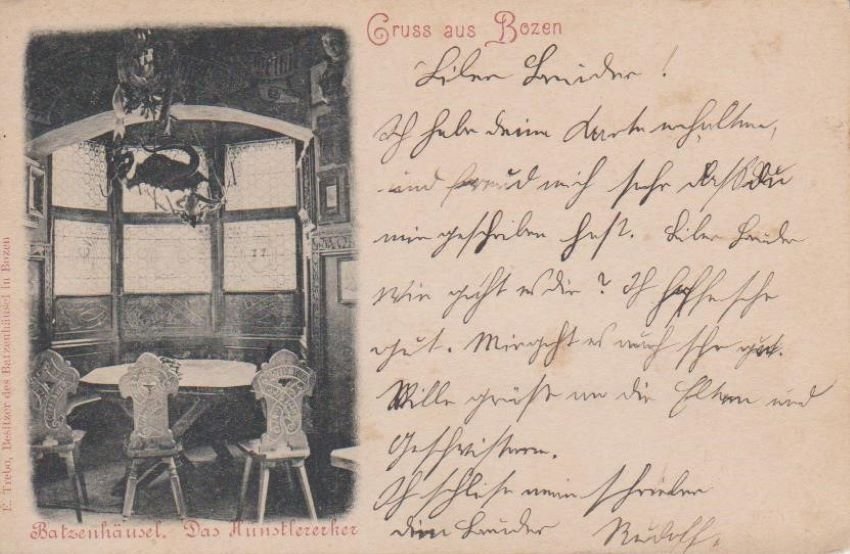 Gruss aus Bozen
Liber Bruder!
Ich habe deine Karte erhalten,
und freud mich sehr dass du
mir geschriben hast. Liber Bruder
Wie geht es dir? Ich hoffe sehr
gut. Mir geht es auch sehr gut.
Ville grüsse an die Eltern und
Geschwistern.
Ich schlise mein schreiben
dein Bruder Rudolf.
Batzenhäusel. Das Künstlererker
E. Trebo, Besitzer des Batzenhäusel in Bozen